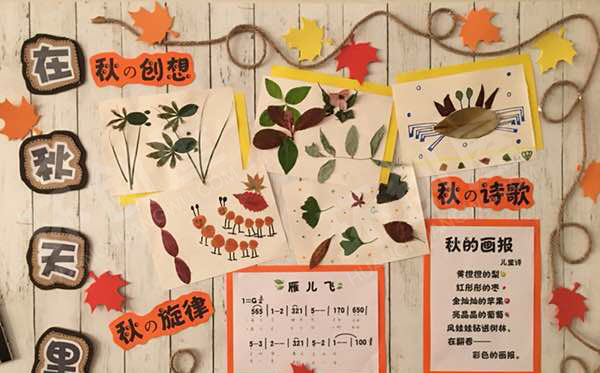 在
秋
天
里
秋の创想
秋の诗歌
秋の旋律
雁儿飞
1=G
565 | 1-2 | 321 | 5-- | 170 | 650 |
5-3 | 2-2 | 321 | 5-- | 1-- | 100
秋的画报
儿童诗
黄橙橙的梨
红彤彤的枣
金灿灿的苹果
亮晶晶的葡萄
风娃娃钻进树林，
在翻看——
彩色的画报。